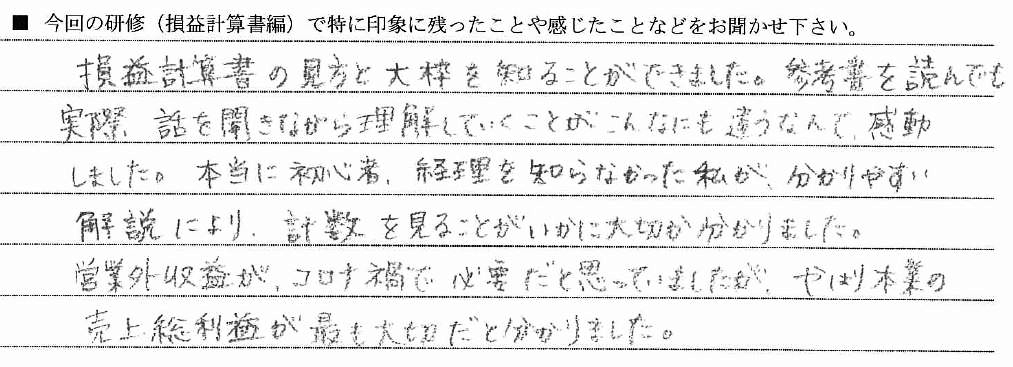 ■ 今回の研修（損益計算書編）で特に印象に残ったことや感じたことなどをお聞かせ下さい。
損益計算書の見方と大枠を知ることができました。参考書を読んでも
実際、話を聞きながら理解していくことがこんなにも違うなんて、感動
しました。本当に初心者、経理を知らなかった私が、分かりやすい
解説により、計数を見ることがいかに大切か分かりました。
営業外収益が、コロナ禍で必要だと思っていましたが、やはり本業の
売上総利益が最も大切だと分かりました。